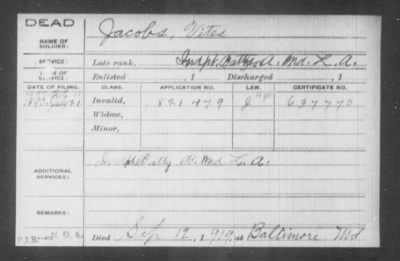 DEAD
NAME OF SOLDIER: Jacobs, Vites
SERVICE: Late rank, Indpt. Batty A. Md. L. A.
TERM OF SERVICE: Enlisted , 1 Discharged , 1
DATE OF FILING. CLASS. APPLICATION NO. LAW. CERTIFICATE NO.
July 21 Invalid, 821479 637770
Widow,
Minor,
ADDITIONAL SERVICES: Indpt Batty A. Md L. A.
REMARKS:
Died Sep 12, 1919, at Baltimore Md